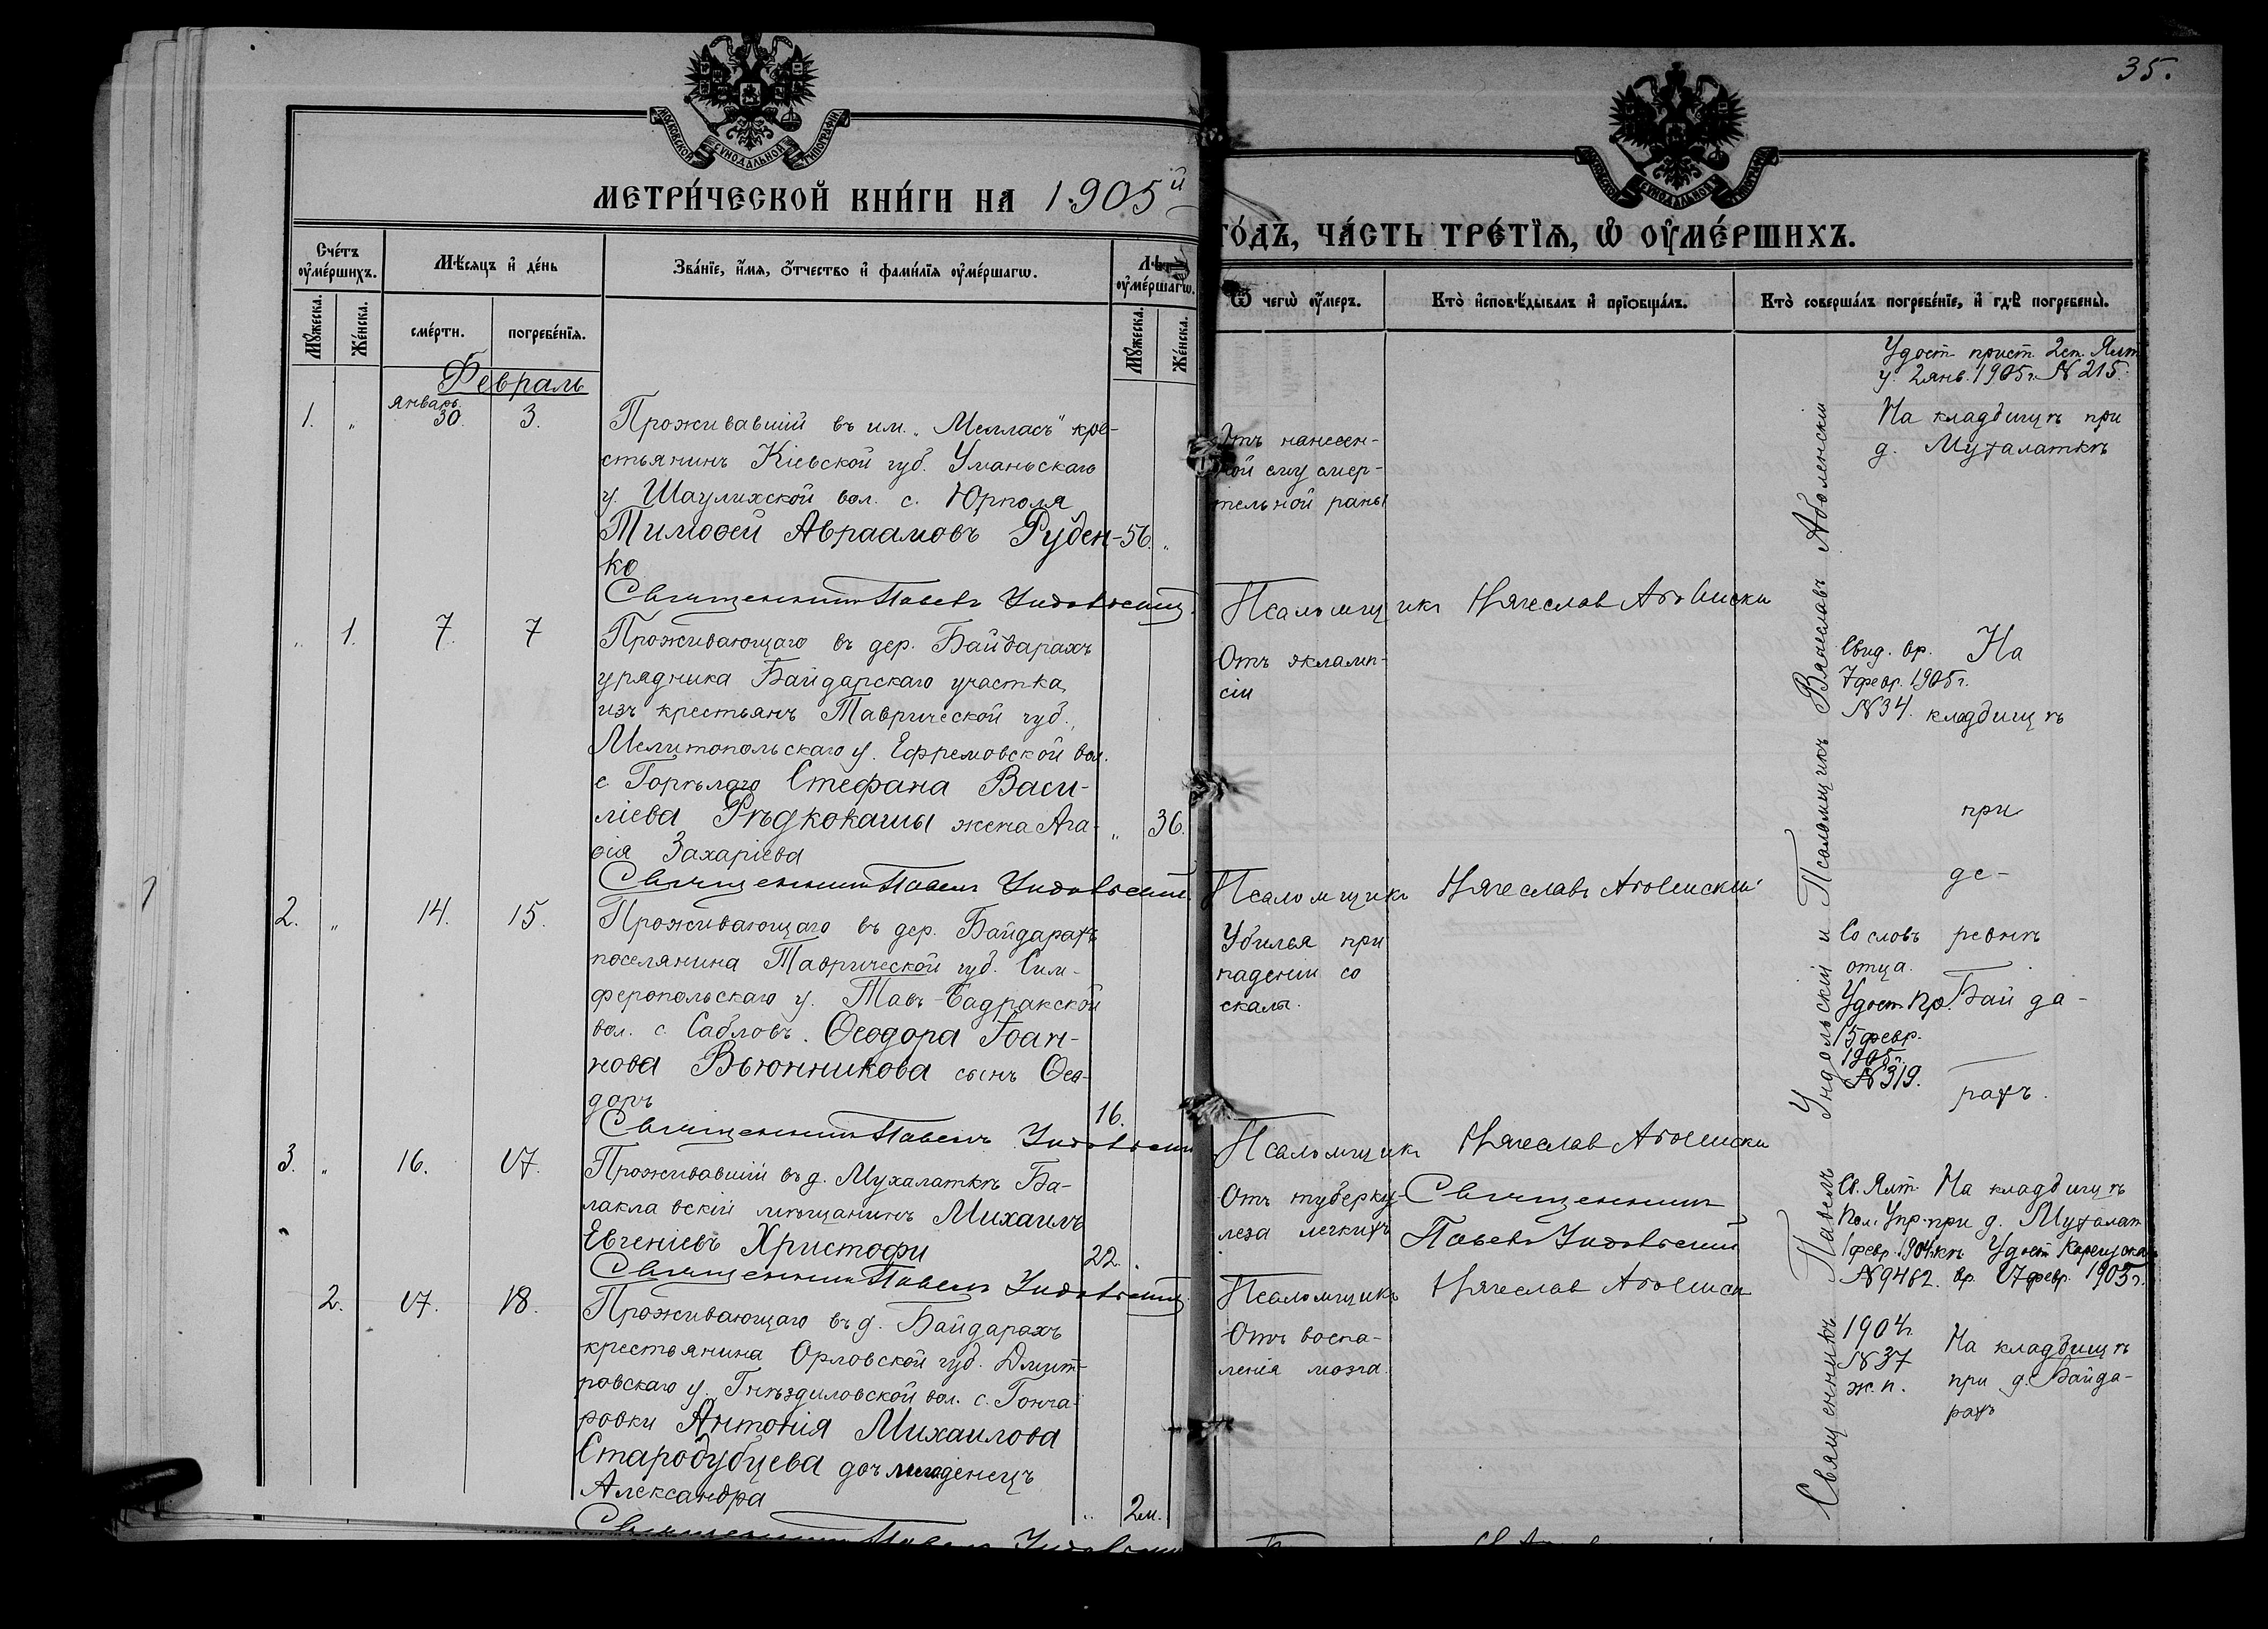 35.
МОСКОВСКОЙ СѴНОДАЛЬНОЙ ТИПОГРАФІИ
МОСКОВСКОЙ СѴНОДАЛЬНОЙ ТИПОГРАФІИ
МЕТРИ́ЧЕСКОЙ КНИ́ГИ НА 1905й
ГО́ДЪ, ЧА́СТЬ ТРЕ́ТІѦ, Ѡ ОУ҆МЕ́РШИХЪ.
Сче́тъ оу҆ме́ршихъ.
Мѣ́сяцъ и҆ де́нь
Зва́нїе, и҆́мя, ѻ҆́тчество и҆ фамѝлїя оу҆ме́ршагѡ.
Лѣ́та оу҆ме́ршагѡ.
Ѿ чегѡ̀ оу҆́меръ.
Кто̀ и҆сповѣ́дывалъ и҆ прїѡбща́лъ.
Кто̀ соверша́лъ погребе́нїе, и҆ гдѣ̀ погребены̀.
Мꙋ́жеска.
Же́нска.
сме́рти.
погребе́нїя.
Мꙋ́жеска.
Же́нска.
Февраль
1. „ январь 30. 3.
Проживавшій въ им. „Мелласъ" кре-
стьянинъ Кіевской губ. Уманьскаго
у. Шаулихской вол. с. Юрполя
Тимоѳей Авраамовъ Руден- 56. „
ко
Отъ нанесен-
ной ему смер-
тельной раны
Удост. прист. 2 ст. Ялт.
у. 2 янв. 1905 г. № 215.
На кладбищѣ при
д. Мухалаткѣ
Священникъ Павелъ Ундольскій
Псаломщикъ Вячеслав Аболенски
„ 1. 7. 7
Проживающаго въ дер. Байдарахъ
урядника Байдарскаго участка,
изъ крестьянъ Таврической губ.,
Мелитопольскаго у. Ефремовской вол.
с. Горѣлаго Стефана Васи-
ліева Рѣдкокаши жена Ага- „ 36.
ѳія Захаріева
Отъ эклamп-
сіи
Свид. вр.
7 февр. 1905 г.
№ 34.
На
кладбищѣ
при
де-
Священникъ Павелъ Ундольскій
Псаломщикъ Вячеславъ Аболенский
2. „ 14. 15.
Проживающаго въ дер. Байдарахъ
поселянина Таврической губ. Сим-
феропольскаго у. Тавъ-Бадракской
вол. с. Сабловъ. Ѳеодора Іоан-
нова Вьюнникова сынъ Ѳео-
доръ 16.
Убился при
паденіи со
скалы.
Со словъ
отца.
Удост. пр.
15 февр.
1905 г.
№ 319.
ревнѣ
Байда-
рахъ.
Священникъ Павелъ Ундольскій
Псаломщикъ Вячеслав Аболенски
3. „ 16. 17.
Проживавшій въ д. Мухалаткѣ Ба-
лаклавскій мѣщанинъ Михаилъ
Евгеніевъ Христофи 22.
Отъ туберку-
леза легкихъ
Священникъ
Павелъ Ундольский
Св. Ялт.
Пол. Упр.
1 февр. 1904
№ 9462.
На кладбищѣ
при д. Мухалат-
кѣ Удост.
вр. 17 февр. 1905 г.
Священникъ Павелъ Ундольскій
Псаломщикъ Вячеслав Аболенски
2. 17. 18.
Проживающаго въ д. Байдарахъ
крестьянина Орловской губ. Дмит-
ровскаго у. Гнѣздиловской вол. с. Гонча-
ровки Антонія Михаилова
Стародубцева доч младенецъ
Александра „ 2 м.
Отъ воспа-
ленія мозга.
1904 г.
№ 37
ж. п.
На кладбищѣ
при д. Байда-
рахъ
Священникъ Павелъ Ундольскій
Священникъ Павелъ Ундольскій и Псаломщикъ Вячеславъ Аболенски